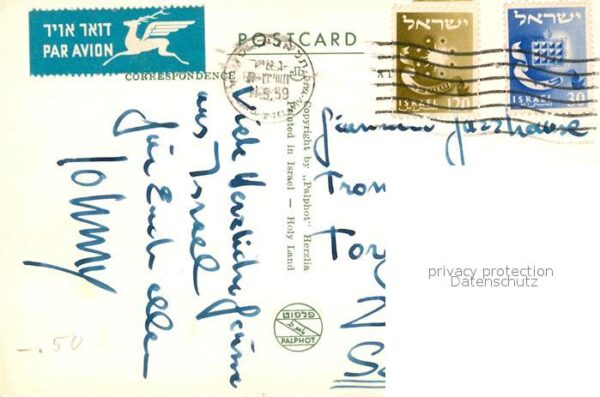 דואר אויר
PAR AVION
POSTCARD
CORRESPONDENCE
5.59
ישראל
ISRAEL 120
ישראל
ISRAEL 30
Viele herzliche Grüsse
aus Israel
für Euch alle
Johnny
Copyright by „Palphot" Herzlia
Printed in Israel — Holy Land
פלפוט
PALPHOT
Tor
-.50
privacy protection
Datenschutz